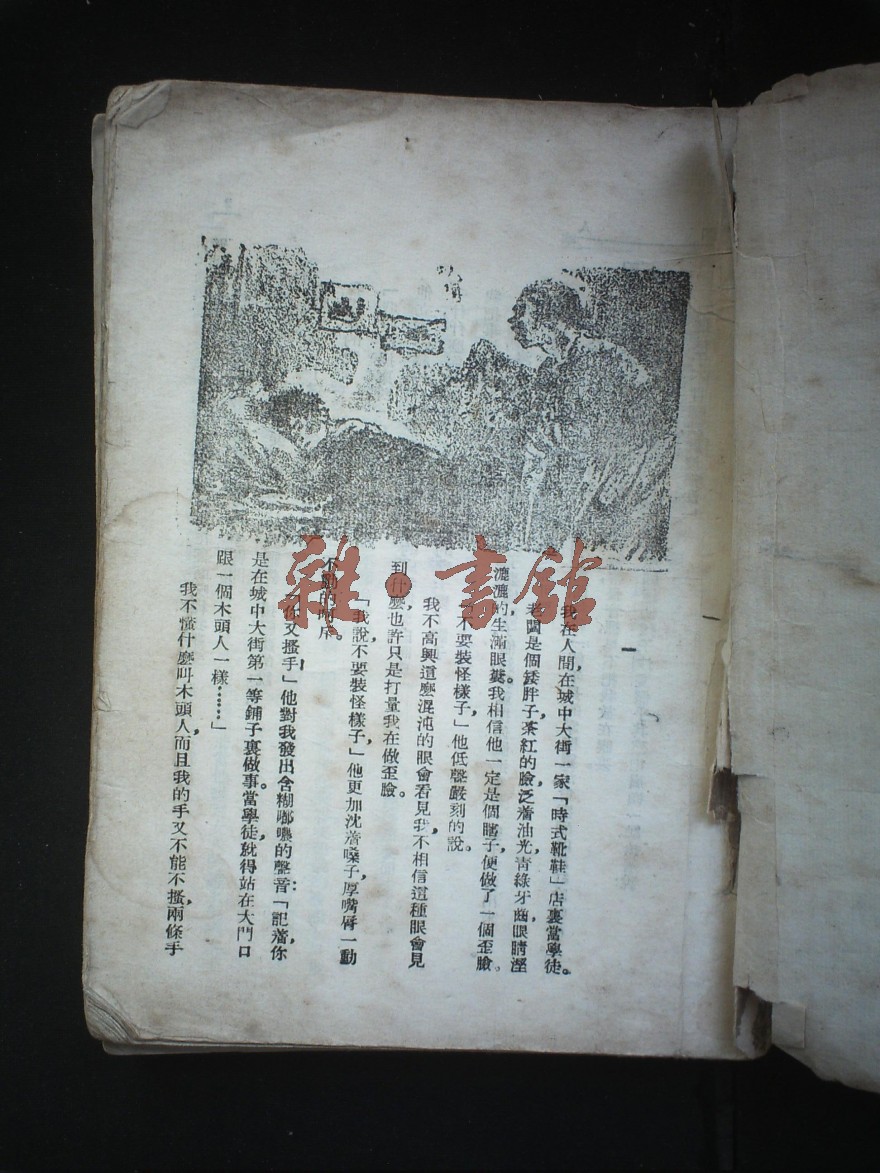 一
我在人間，在城中大街一家「時式靴鞋」店裏當學徒。
老闆是個矮胖子，茶紅的臉泛着油光，青綠牙齒，眼睛溼
漉漉的，生滿眼糞。我相信他一定是個瞎子，便做了一個歪臉。
「不要裝怪樣子，」他低聲嚴刻的說。
我不高興這麼混沌的眼會看見我，不相信這種眼會見
到什麼，也許只是打量我在做歪臉。
「我說不要裝怪樣子，」他更加沈着嗓子，厚嘴脣一動
不動的
「你又搔手，」他對我發出含糊嘟囔的聲音：「記着，你
是在城中大街第一等鋪子裏做事。當學徒，就得站在大門口
跟一個木頭人一樣……」
我不懂什麼叫木頭人，而且我的手又不能不搔，兩條手
雜·書館